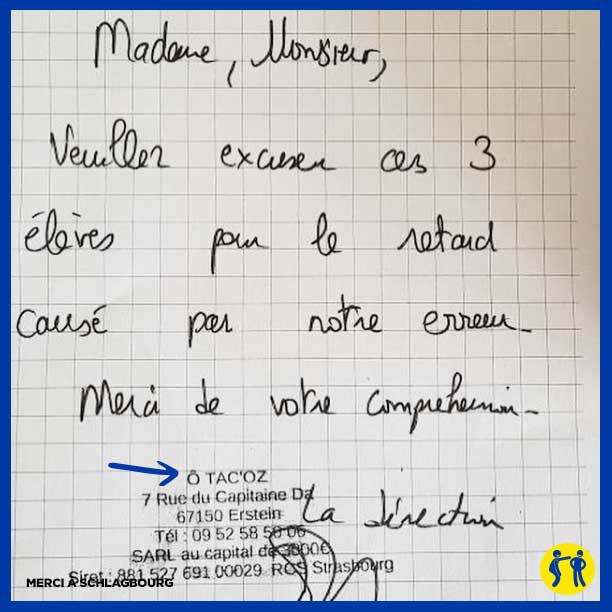 Madame, Monsieur,
Veuillez excuser ces 3
élèves pour le retard
causé par notre erreur.
Merci de votre compréhension.
Ô TAC'OZ
7 Rue du Capitaine
67150 Erstein
La direction
Tél : 09 52 58 50 06
SARL au capital de 3000€
Siret : 881 527 691 00029 RCS Strasbourg
MERCI À SCHLAGBOURG